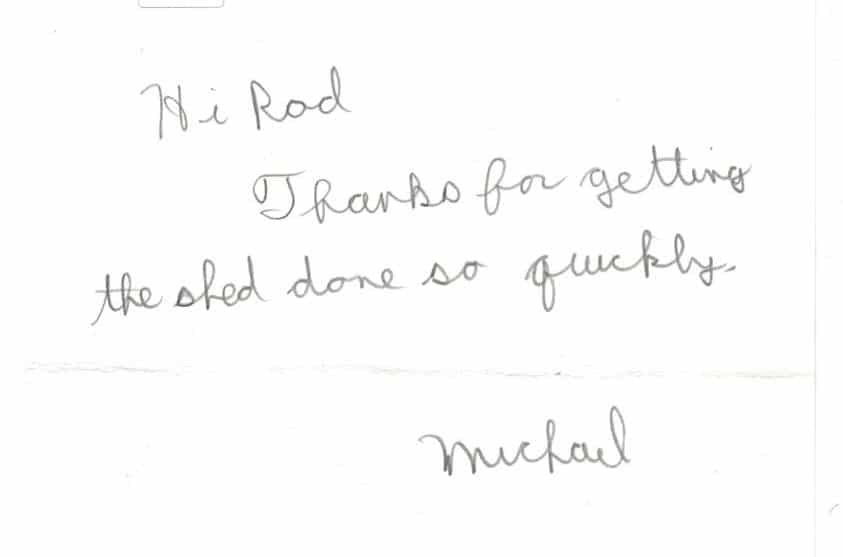 Hi Rod
Thanks for getting
the shed done so quickly.
Michael